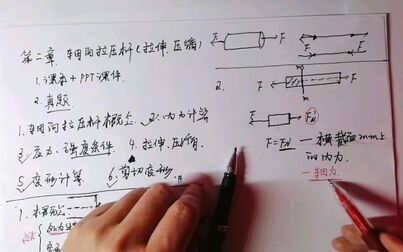 第二章 轴向拉压杆(拉伸、压缩)
1.课本+PPT课件
2.真题
1.轴向拉压杆概念、2.内力计算
3.应力、强度条件 4.拉伸、压缩
5.变形计算 6.剪切
1.概念
F F
F F
2. m F
m
F FN
F=FN — 横截面m-m上
的内力
—轴力